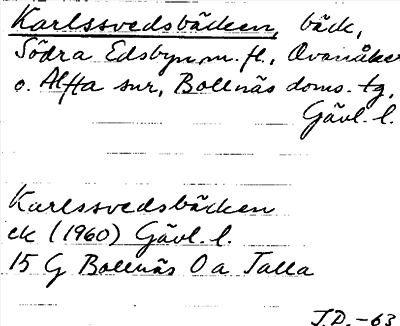 Karlssvedsbäcken, bäck,
Södra Edsbyn m. fl., Ovanåker
o. Alfta snr, Bollnäs doms. tg,
Gävl. l.
Karlssvedsbäcken
ek (1960) Gävl. l.
15 G Bollnäs 0 a Talla
J.D. -63